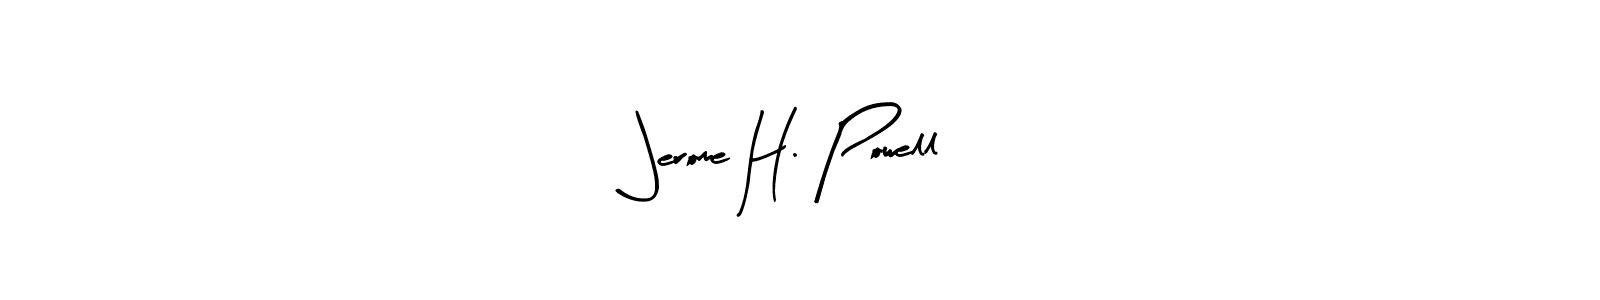 Jerome H. Powell